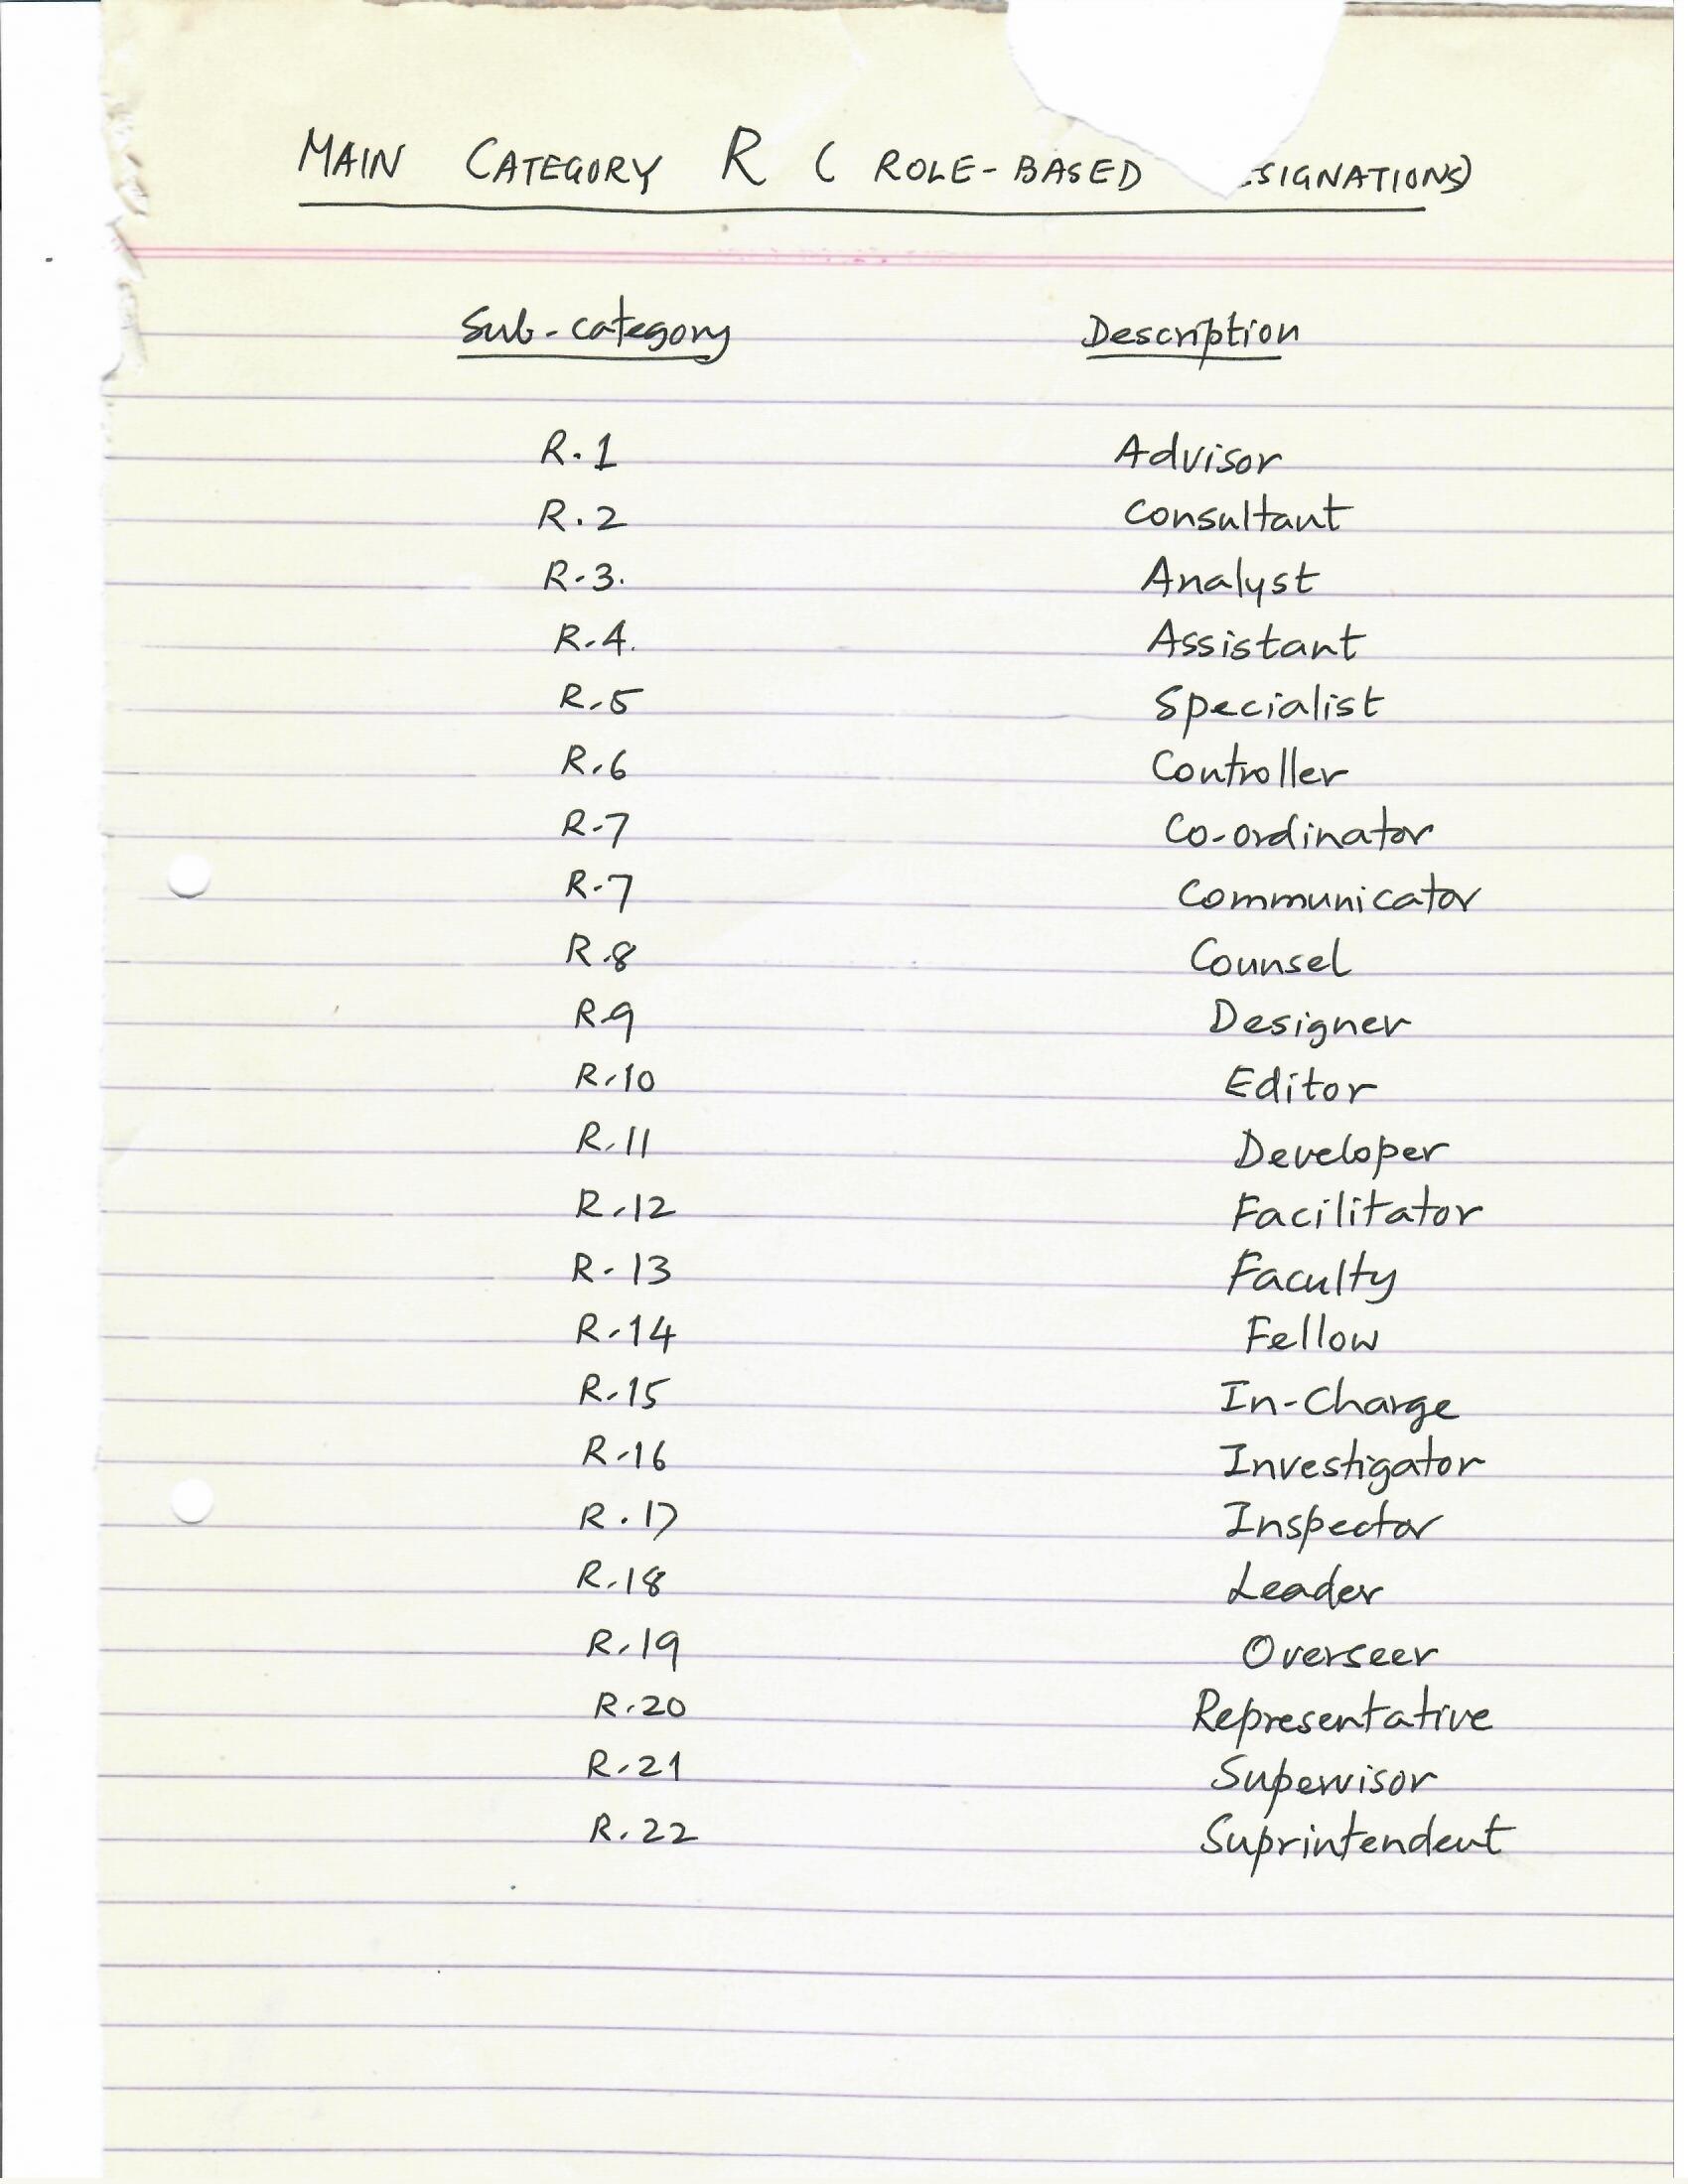 MAIN CATEGORY R ( ROLE-BASED SIGNATIONS)
Sub-category Description
R.1 Advisor
R.2 Consultant
R.3. Analyst
R.4. Assistant
R.5 Specialist
R.6 Controller
R.7 Co-ordinator
R.7 Communicator
R.8 Counsel
R.9 Designer
R.10 Editor
R.11 Developer
R.12 Facilitator
R.13 Faculty
R.14 Fellow
R.15 In-Charge
R.16 Investigator
R.17 Inspector
R.18 Leader
R.19 Overseer
R.20 Representative
R.21 Supervisor
R.22 Suprintendent